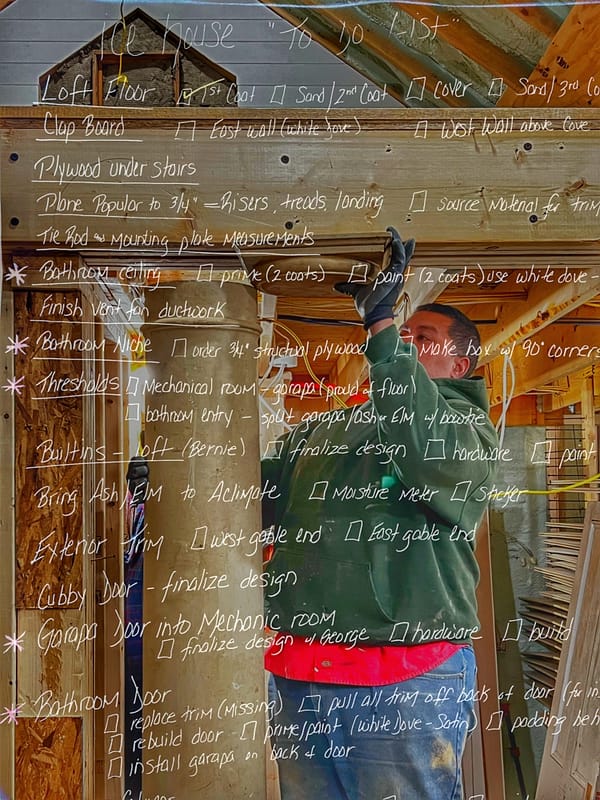 ice house "To Do List"
Loft Floor ☑ 1st Coat ☐ Sand/2nd Coat ☐ Cover ☐ Sand/3rd Co
Clap Board ☐ East wall (white dove) ☐ West Wall above Cove
Plywood under stairs
Plane Popular to 3/4" - Risers, treads, landing ☐ source material for trim
Tie Rod & Mounting plate Measurements
* Bathroom ceiling ☐ prime (2 coats) ☐ paint (2 coats) use white dove -
Finish vent fan ductwork
* Bathroom Niche ☐ order 3/4" structual plywood ☐ Make box w/ 90° corners
* Thresholds ☐ Mechanical room - garapa (proud of floor)
☐ bathroom entry - split garapa/ash or Elm w/ bowtie
Builtins - Loft (Bernie) ☐ finalize design ☐ hardware ☐ paint
Bring Ash/Elm to Aclimate ☐ Moisture Meter ☐ Sticker
Exterior Trim ☐ west gable end ☐ East gable end
Cubby Door - finalize design
* Garapa Door into Mechanic room
☐ finalize design w/ George ☐ hardware ☐ build
* Bathroom Door
☐ replace trim (missing) ☐ pull all trim off back of door (fur in
☐ rebuild door - ☐ prime/paint (White Dove - Satin) ☐ padding beh
☐ install garapa on back of door